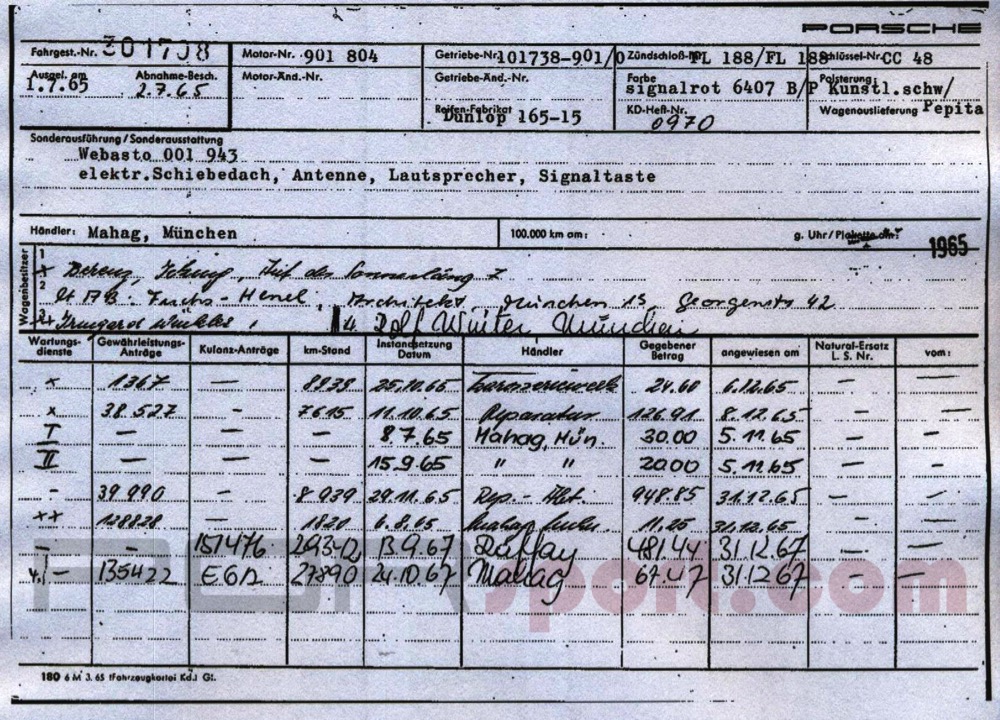 PORSCHE
Fahrgest.-Nr. 301738 Motor-Nr. 901 804 Getriebe-Nr 101738-901/0 Zündschloß-Nr FL 188/FL 188 Schlüssel-Nr CC 48
Ausgel. am 1.7.65 Abnahme-Besch. 2.7.65 Motor-Änd.-Nr. Getriebe-Änd.-Nr. Farbe signalrot 6407 B/P Polsterung: Kunstl.schw/
Reifen-Fabrikat Dunlop 165-15 KD-Heft-Nr. 0970 Wagenauslieferung Pepita
Sonderausführung / Sonderausstattung
Webasto 001 943
elektr.Schiebedach, Antenne, Lautsprecher, Signaltaste
Händler: Mahag, München 100.000 km am: g. Uhr/Plakette am: 1965
Wagenbesitzer
1
2 Fuchs-Henel, Architekt, München 13, Georgenstr 42
4 Rolf Winter München
Wartungsdienste Gewährleistungs-Anträge Kulanz-Anträge km-Stand Instandsetzung Datum Händler Gegebener Betrag angewiesen am Natural-Ersatz L. S. Nr. vom:
x 1367 — 8839 24.60 6.12.65 — —
x 38 527 - 7615 11.10.65 Reparatur 126.91 8.12.65 — —
I — — — 8.7.65 Mahag, Mün. 30.00 5.11.65 — —
II — — — 15.9.65 " " 20.00 5.11.65 — —
- 39 990 - 8 939 29.11.65 Rep.-Abt. 948.85 31.12.65 — —
xx 128828 — 1820 6.8.65 11.25 31.12.65 — —
— — 151476 29342 13.9.67 Raffay 481.44 31.12.67 — —
— 135422 EGA 27890 24.10.67 Mahag 67.47 31.12.67 — —
sport.com
180 6 M 3. 65 (Fahrzeugkartei Kd.) Gt.